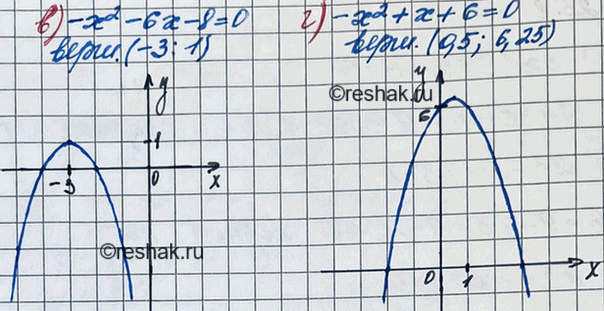 в) -x² - 6x - 8 = 0
верш. (-3; 1)
y
1
-3
0
x
г) -x² + x + 6 = 0
верш. (0,5; 6,25)
y
©reshak.ru
6
0
1
x
©reshak.ru